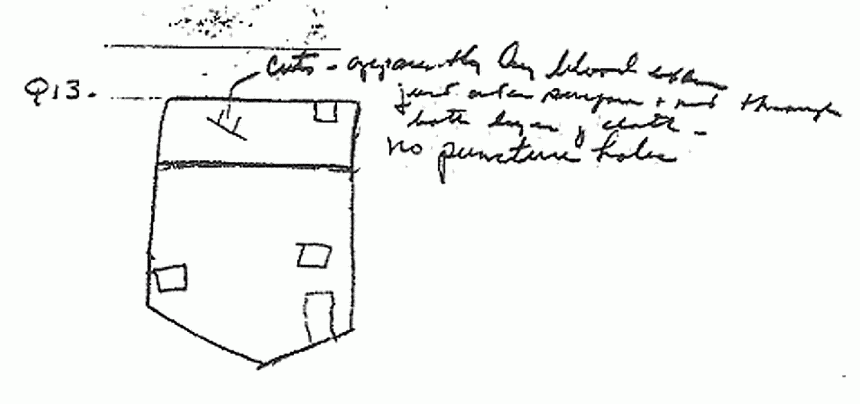 Q13.
cuts - apparently by blood exam
just outer surface + not through
both layers of cloth -
no puncture holes